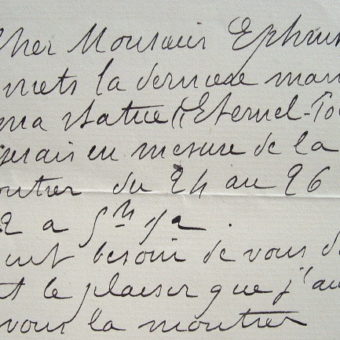 Cher Monsieur Ephrus
mets la derniere main
ma statue (l'Eternel-
serais en mesure de la
montrer du 24 au 26
2 a 5
besoin de vous d
t le plaisir que j'au
vous la montrer